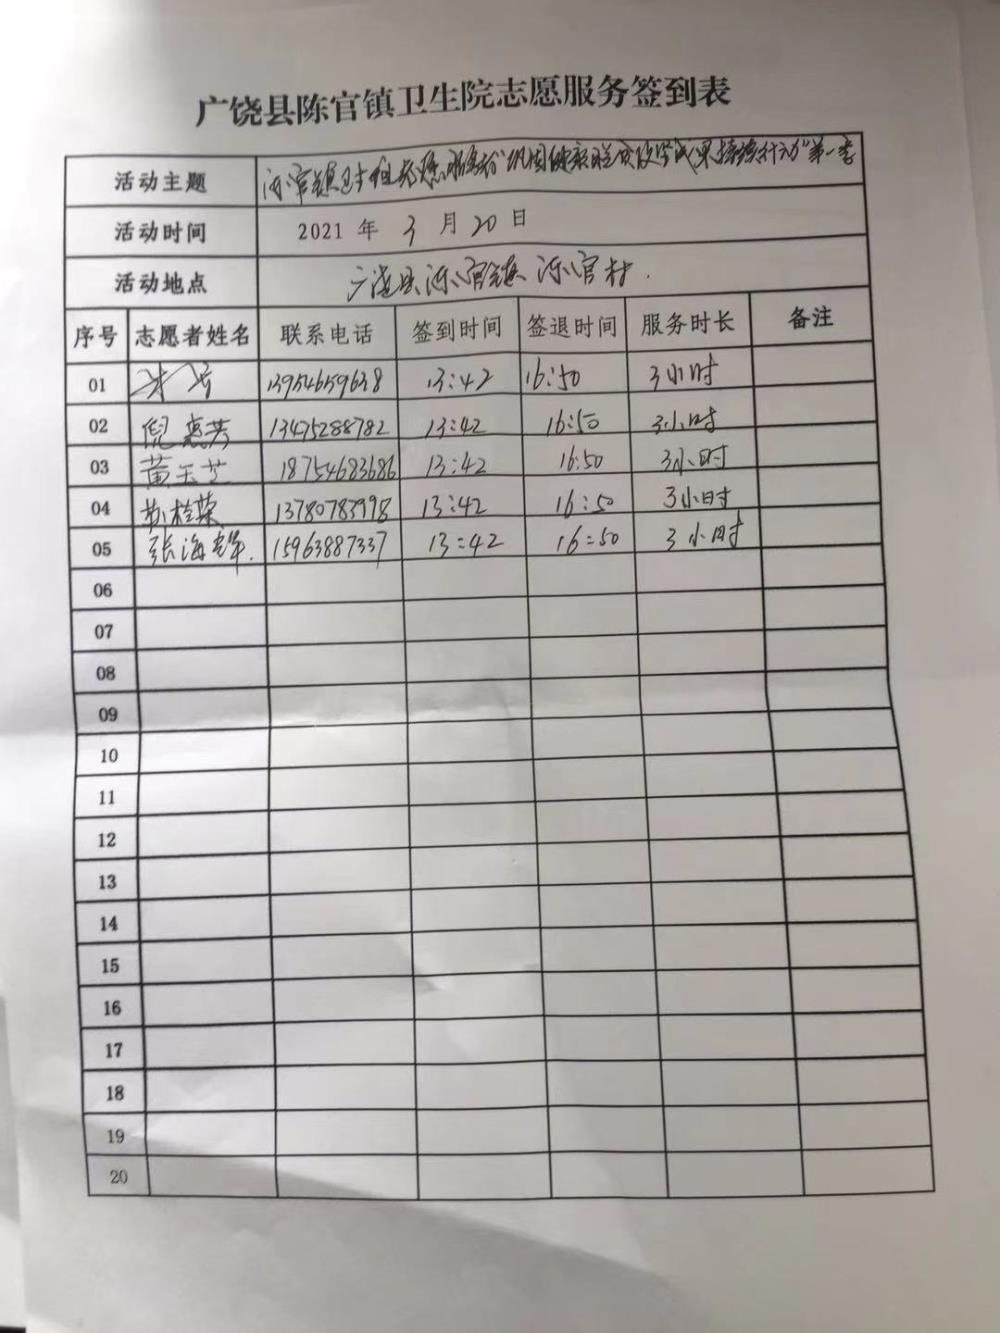 广饶县陈官镇卫生院志愿服务签到表
活动主题 陈官镇卫生院志愿服务 "巩固健康脱贫攻坚成果持续行动" 第一季
活动时间 2021 年 3 月 20 日
活动地点 广饶县陈官镇陈官村.
序号 志愿者姓名 联系电话 签到时间 签退时间 服务时长 备注
01 13954659638 13:42 16:50 3小时
02 倪惠芳 13475288782 13:42 16:50 3小时
03 黄玉芝 18754683686 13:42 16:50 3小时
04 苏桂荣 13780783998 13:42 16:50 3小时
05 张海 15963887337 13:42 16:50 3小时
06
07
08
09
10
11
12
13
14
15
16
17
18
19
20